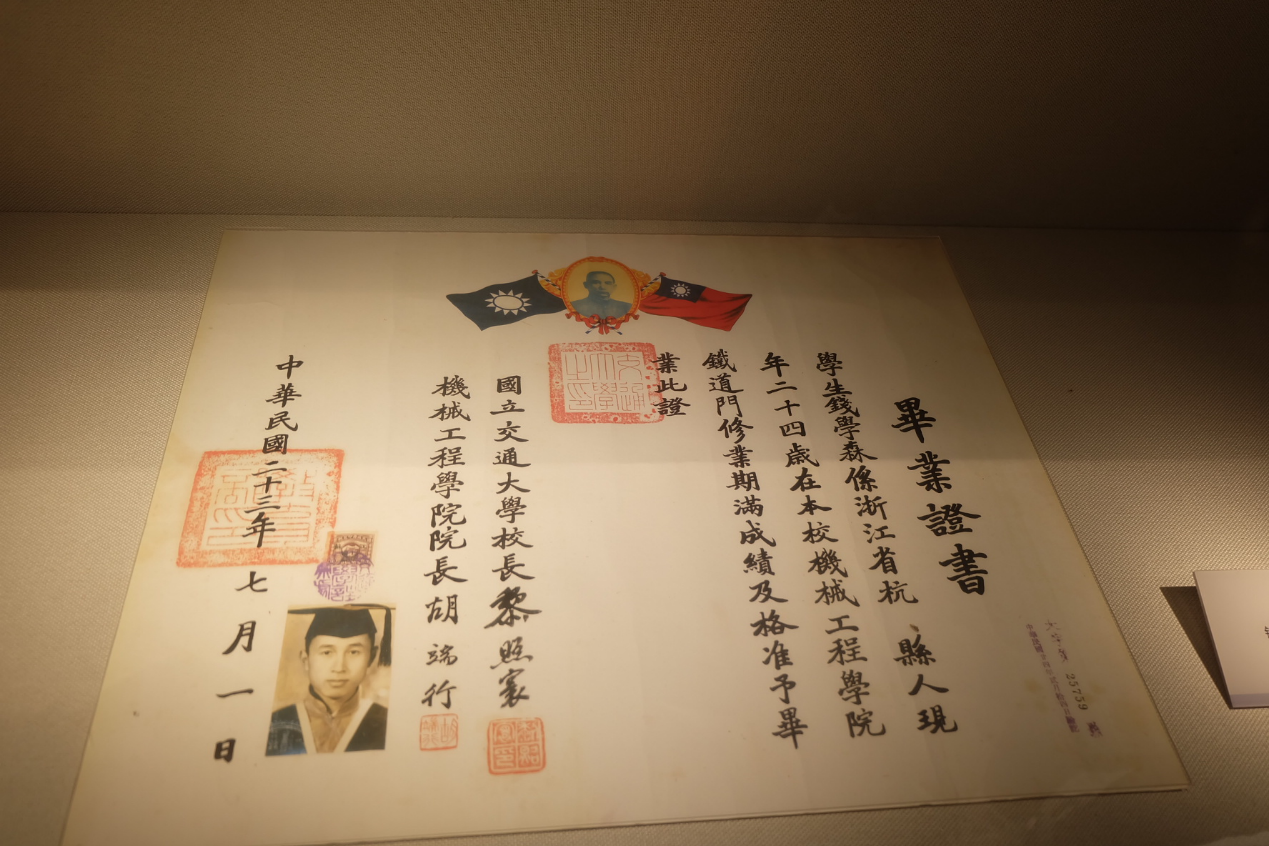 畢業證書
學生錢學森係浙江省杭縣人現
年二十四歲在本校機械工程學院
鐵道門修業期滿成績及格准予畢
業此證
國立交通大學校長黎照寰
機械工程學院院長胡端行
中華民國二十三年七月一日